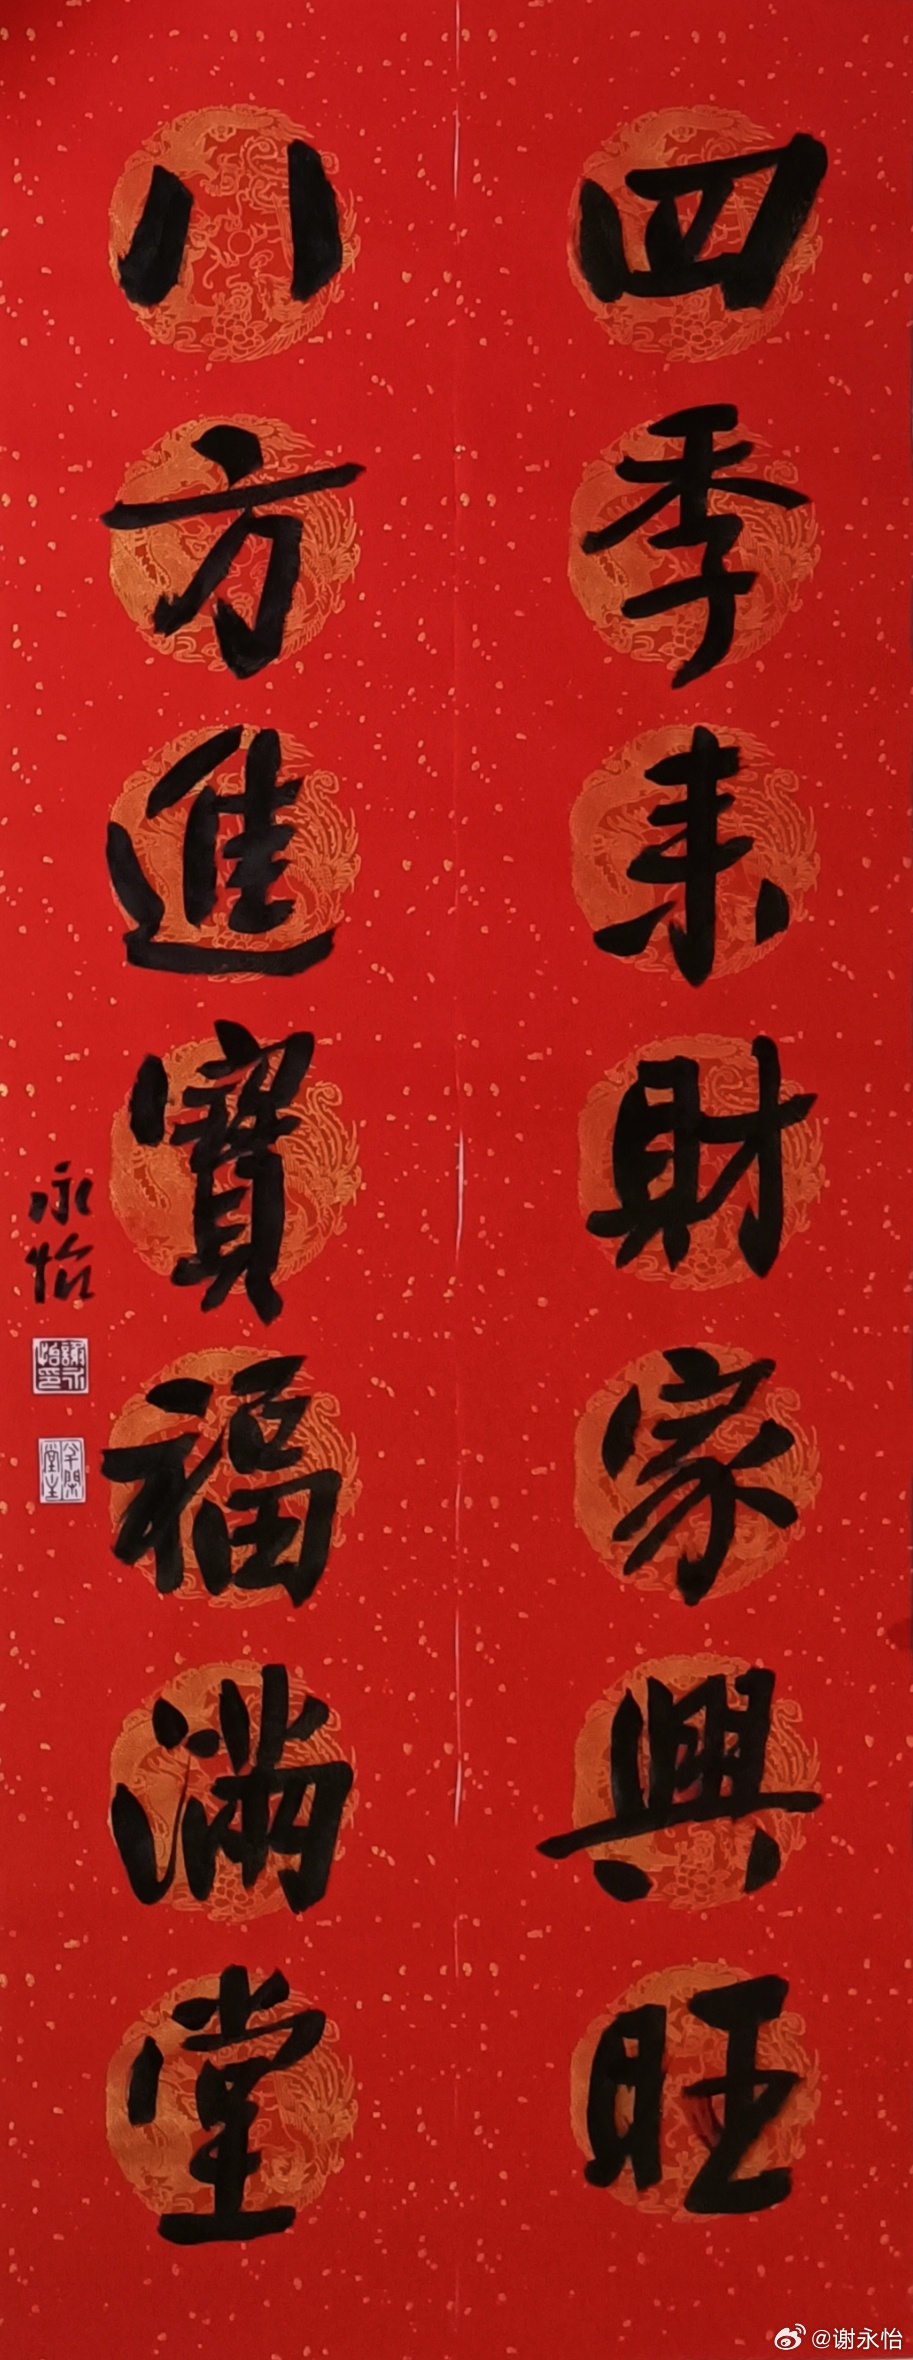 四季来財家興旺
八方進寶福滿堂
永怡
謝永怡印
@谢永怡